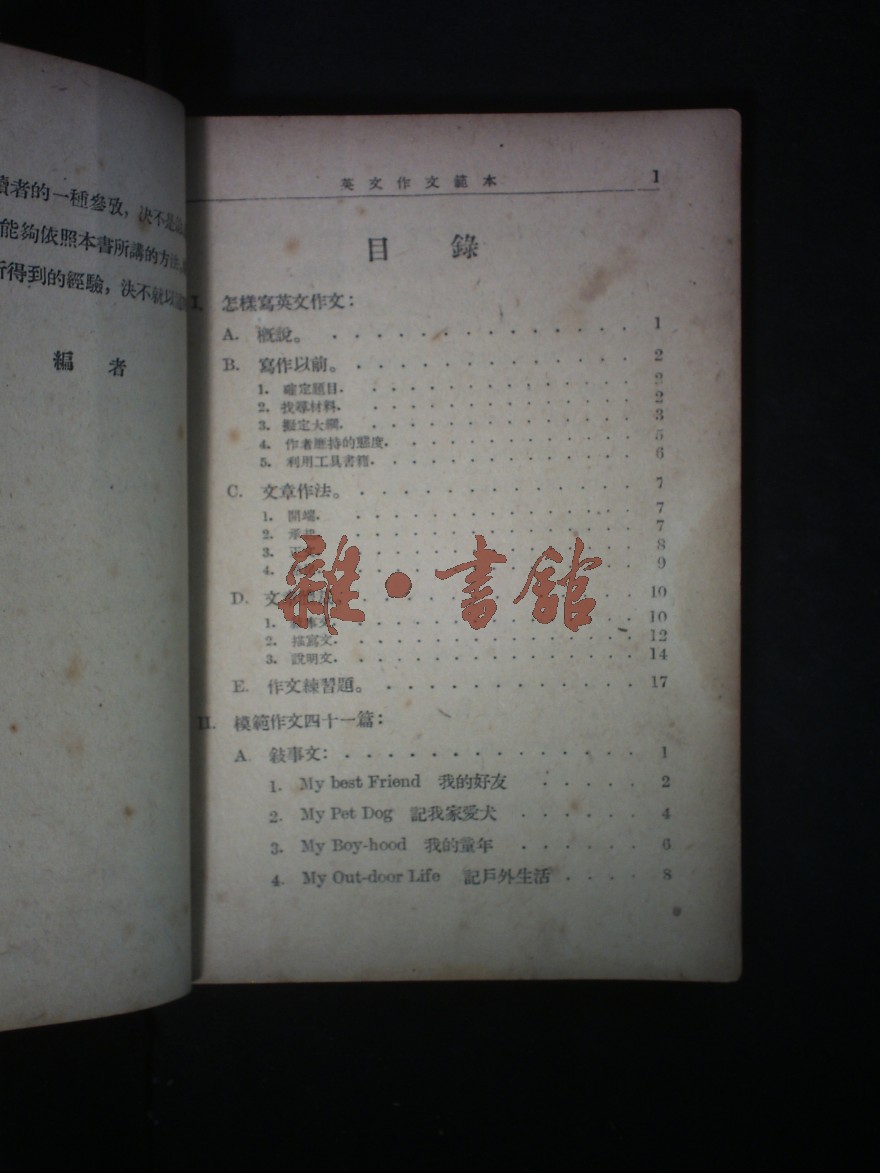 讀者的一種參攷，決不是
能夠依照本書所講的方法，
所得到的經驗，決不就以
編者
英文作文範本 1
目錄
I. 怎樣寫英文作文：
A. 概說。 1
B. 寫作以前。 2
1. 確定題目. 2
2. 找尋材料. 2
3. 擬定大綱. 3
4. 作者應持的態度. 5
5. 利用工具書籍. 6
C. 文章作法。 7
1. 開端. 7
2. 承 7
3. 正 8
4. 9
D. 文章 10
1. 敍事文. 10
2. 描寫文. 12
3. 說明文. 14
E. 作文練習題。 17
II. 模範作文四十一篇：
A 敍事文： 1
1. My best Friend 我的好友 2
2. My Pet Dog 記我家愛犬 4
3. My Boy-hood 我的童年 6
4. My Out-door Life 記戶外生活 8
雜·書館